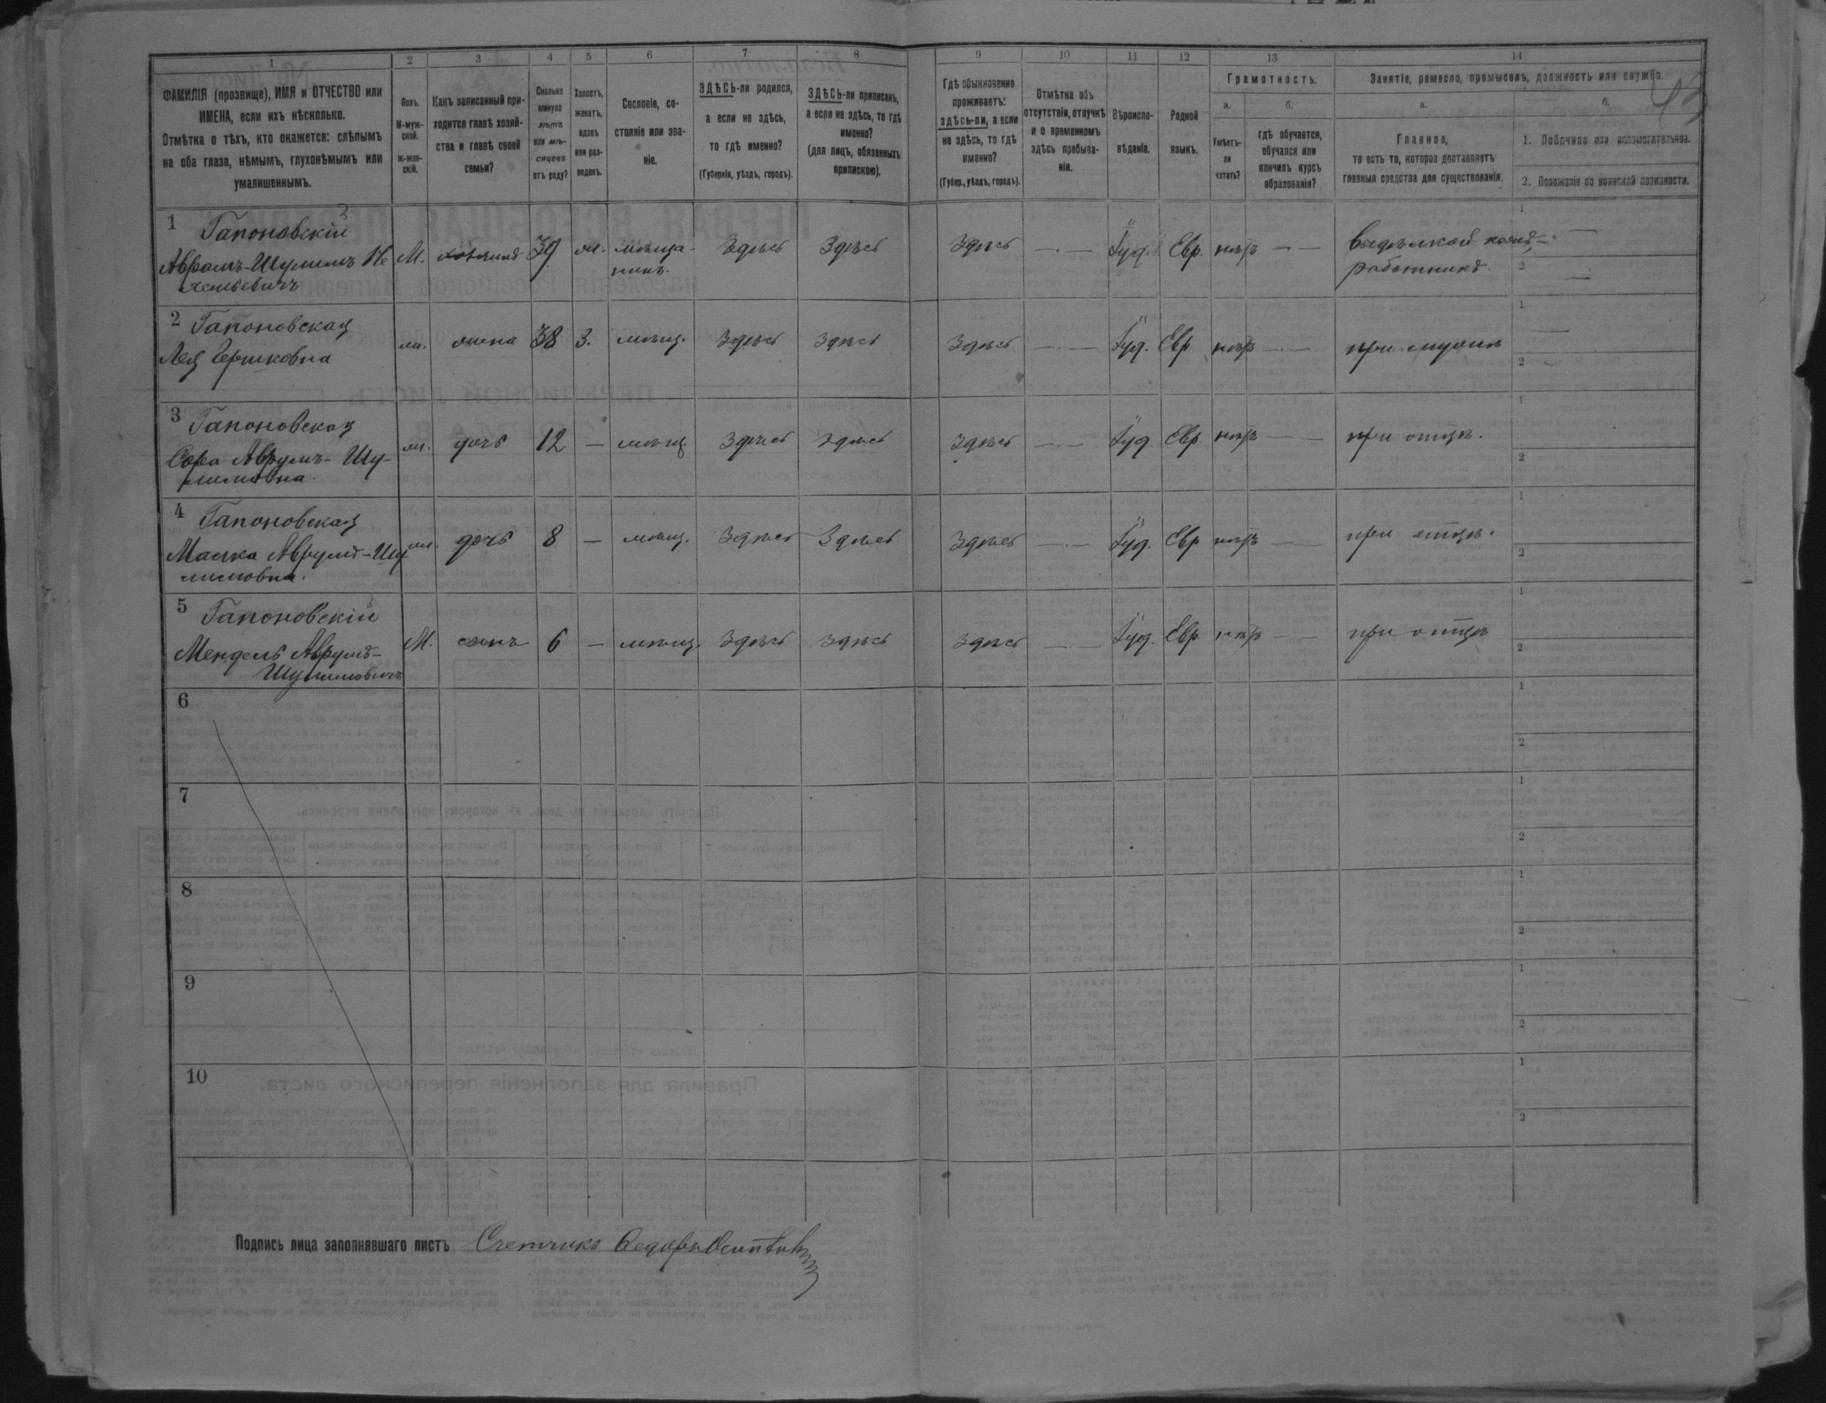 1
2
3
4
5
6
7
8
9
10
11
12
13
14
ФАМИЛІЯ (прозвище), ИМЯ и ОТЧЕСТВО или
ИМЕНА, если ихъ нѣсколько.
Отмѣтка о тѣхъ, кто окажется: слѣпымъ
на оба глаза, нѣмымъ, глухонѣмымъ или
умалишеннымъ.
Полъ.
М-муж-
ской.
Ж-жен-
скій.
Какъ записанный при-
ходится главѣ хозяй-
ства и главѣ своей
семьи?
Сколько
минуло
лѣтъ
или мѣ-
сяцевъ
отъ роду?
Холостъ,
женатъ,
вдовъ
или раз-
веденъ.
Сословіе, со-
стояніе или зва-
ніе.
ЗДѢСЬ-ли родился,
а если не здѣсь,
то гдѣ именно?
(Губернія, уѣздъ, городъ).
ЗДѢСЬ-ли приписанъ,
а если не здѣсь, то гдѣ
именно?
(для лицъ, обязанныхъ
припискою).
Гдѣ обыкновенно
проживаетъ:
здѣсь-ли, а если
не здѣсь, то гдѣ
именно?
(Губер., уѣздъ, городъ).
Отмѣтка объ
отсутствіи, отлучкѣ
и о временномъ
здѣсь пребыва-
ніи.
Вѣроиспо-
вѣданіе.
Родной
языкъ.
Грамотность.
а.
б.
Умѣетъ-
ли
читать?
гдѣ обучается,
обучался или
кончилъ курсъ
образованія?
Занятіе, ремесло, промыселъ, должность или служба.
а.
б.
Главное,
то есть то, которое доставляетъ
главныя средства для существованія.
1. Побочное или вспомогательное.
2. Положеніе по воинской повинности.
1 Гапоновскій
М. хозяинъ 39 ж. мѣща- Здѣсь Здѣсь Здѣсь — — Іуд. Евр. нѣтъ — — выдѣлкой кожъ, 1 —
никъ.
работникъ. 2 —
2 Гапоновская
Лея Гершковна ж. жена 38 З. мѣщ. Здѣсь Здѣсь Здѣсь — — Іуд. Евр нѣтъ — — при мужѣ 1 —
2
3 Гапоновская
Сора Аврумъ-Шу- ж. дочь 12 — мѣщ Здѣсь Здѣсь Здѣсь — — Іуд. Евр нѣтъ — — при отцѣ. 1
лимовна. 2
4 Гапоновская
Малка Аврумъ-Шу ж. дочь 8 — мѣщ. Здѣсь Здѣсь Здѣсь — — Іуд. Евр нѣтъ — — при отцѣ. 1
лимовна. 2
5 Гапоновскій
Мендель Аврумъ- М. сынъ 6 — мѣщ. Здѣсь Здѣсь Здѣсь — — Іуд. Евр нѣтъ — — при отцѣ 1
Шулимовичъ 2
6
1
2
7
1
2
8
1
2
9
1
2
10
1
2
Подпись лица заполнявшаго листъ Счетчикъ